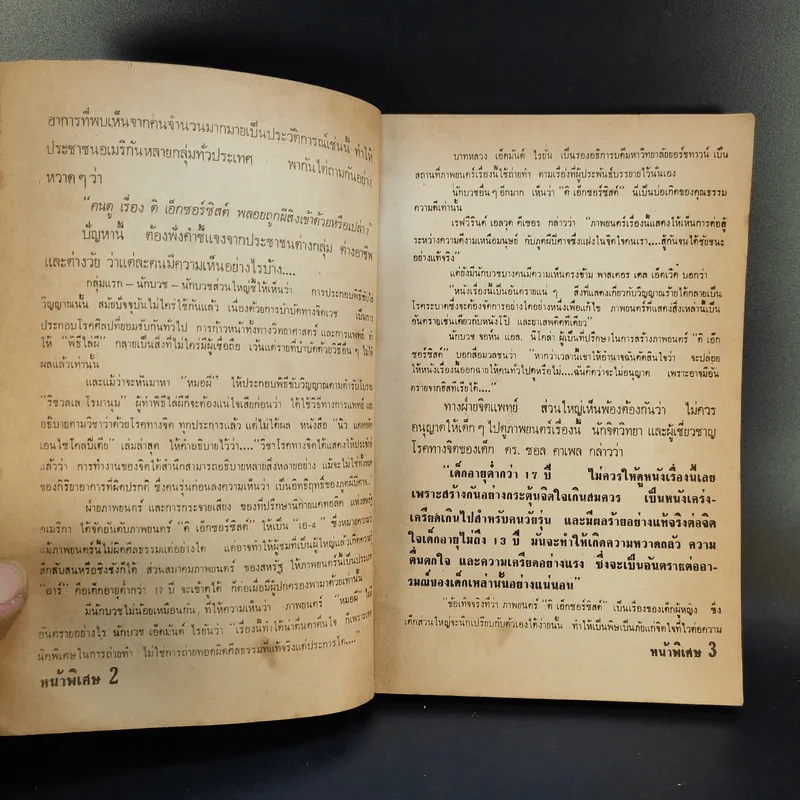 อาการที่พบเห็นจากคนจำนวนมากมายเป็นประวัติการณ์เช่นนี้ ทำให้
ประชาชนอเมริกันหลายกลุ่มทั่วประเทศ พากันไต่ถามกันอย่าง
หวาดๆ ว่า
"คนดู เรื่อง ดิ เอ็กซอร์ซิสต์ พลอยถูกผีสิงเข้าด้วยหรือเปล่า?"
ปัญหานี้ ต้องฟังคำชี้แจงจากประชาชนต่างกลุ่ม ต่างอาชีพ
และต่างวัย ว่าแต่ละคนมีความเห็นอย่างไรบ้าง....
กลุ่มแรก – นักบวช – นักบวชส่วนใหญ่ชี้ให้เห็นว่า การประกอบพิธีขับไล่
วิญญาณนั้น สมัยปัจจุบันไม่ใคร่ใช้กันแล้ว เนื่องด้วยการบำบัดทางจิตเวช
ประกอบโรคศิลป์ที่ยอมรับกันทั่วไป การก้าวหน้าทั้งทางวิทยาศาสตร์ และการแพทย์ ทำ
ให้ "พิธีไล่ผี" กลายเป็นสิ่งที่ไม่ใคร่มีผู้เชื่อถือ เว้นแต่รายที่บำบัดด้วยวิธีอื่นๆ ไม่ได้
ผลแล้วเท่านั้น
และแม้ว่าจะหันมาหา "หมอผี" ให้ประกอบพิธีขับวิญญาณตามตำรับโบราณ
"ริชวลเล โรมานุม" ผู้ทำพิธีไล่ผีก็จะต้องแน่ใจเสียก่อนว่า ได้ใช้วิธีทางการแพทย์ และ
อธิบายตามวิชาว่าด้วยโรคทางจิต ทุกประการแล้ว แต่ไม่ได้ผล หนังสือ "นิว แคทอลิค
เอนไซโคลปีเดีย" เล่มล่าสุด ให้คำอธิบายไว้ว่า...."วิชาโรคทางจิตได้แสดงให้ประจักษ์
แล้วว่า การทำงานของจิตใต้สำนึกสามารถอธิบายหลายสิ่งหลายอย่าง แม้จะไม่ใช่ทั้งหมด
ของกิริยาอาการที่ผิดปรกติ ซึ่งคนรุ่นก่อนลงความเห็นว่า เป็นอิทธิฤทธิ์ของภูตผีปีศาจ...
ฝ่ายภาพยนตร์ และการกระจายเสียง ของที่ปรึกษานิกายแคทอลิค แห่งสหรัฐ
อเมริกา ได้จัดอันดับภาพยนตร์ "ดิ เอ็กซอร์ซิสต์" ให้เป็น "เอ-4" ซึ่งหมายความว่า
แม้ภาพยนตร์นี้ไม่ผิดศีลธรรมแต่อย่างใด แต่อาจทำให้ผู้ชมที่เป็นผู้ใหญ่แล้วเกิดความรู้
สึกสับสนหรือชิงชังก็ได้ ส่วนสมาคมภาพยนตร์ ของสหรัฐ ให้ภาพยนตร์นี้เป็นประเภท
"อาร์" คือเด็กอายุต่ำกว่า 17 ปี จะเข้าดูได้ ก็ต่อเมื่อมีผู้ปกครองพามาด้วยเท่านั้น
มีนักบวชไม่น้อยเหมือนกัน, ที่ให้ความเห็นว่า ภาพยนตร์ "หมอผี" ไม่มี
อันตรายอย่างไร นักบวช เอ็ดมันด์ ไรยันว่า "เรื่องนี้ทำได้น่าตื่นตาตื่นใจ ก็เพราะเทค
นิคพิเศษในการถ่ายทำ ไม่ใช่การถ่ายทอดผิดศีลธรรมที่แท้จริงแต่ประการใด..."
หน้าพิเศษ 2
บาทหลวง เอ็ดมันด์ ไรยัน เป็นรองอธิการบดีมหาวิทยาลัยยอร์ชทาวน์ เป็น
สถานที่ภาพยนตร์เรื่องนี้ใช้ถ่ายทำ ตามเรื่องที่ผู้ประพันธ์บรรยายไว้นั้นเอง
นักบวชอื่นๆ อีกมาก เห็นว่า "ดิ เอ็กซอร์ซิสต์" นี้เป็นบ่อเกิดของคุณธรรม
ความดีเท่านั้น
เรฟวีรันด์ เอลวุด คีเซอร กล่าวว่า "ภาพยนตร์เรื่องนี้แสดงให้เห็นการต่อสู้
ระหว่างความดีงามเหนือมนุษย์ กับภูตผีปีศาจซึ่งแฝงในจิตใจคนเรา,...สู้กันจนได้ชัยชนะ
อย่างแท้จริง"
แต่ยังมีนักบวชบางคนมีความเห็นตรงข้าม พาสเตอร เดล เอ็ดเวิด บอกว่า
"หนังเรื่องนี้เป็นอันตรายแน่ ๆ สิ่งที่แสดงเกี่ยวกับวิญญาณร้ายได้กลายเป็น
โรคระบาดซึ่งจะต้องจัดการอย่างใดอย่างหนึ่งเพื่อแก้ไข ภาพยนตร์ที่แสดงสิ่งเหล่านี้เป็น
อันตรายเช่นเดียวกับหนังโป๊ และยาเสพติดทีเดียว"
นักบวช จอห์น แอล. นิโคลา ผู้เป็นที่ปรึกษาในการสร้างภาพยนตร์ "ดิ เอ็ก
ซอร์ซิสต์" บอกสื่อมวลชนว่า "หากว่าเวลานี้เขาให้อำนาจฉันตัดสินใจว่า จะปล่อย
ให้หนังเรื่องนี้ออกฉายให้คนทั่วไปดูหรือไม่....ฉันคิดว่าจะไม่อนุญาต เพราะอาจมีอัน
ตรายจากฮิสทีเรียได้...."
ทางฝ่ายจิตแพทย์ ส่วนใหญ่เห็นพ้องต้องกันว่า ไม่ควร
อนุญาตให้เด็กๆ ไปดูภาพยนตร์เรื่องนี้ นักจิตวิทยา และผู้เชี่ยวชาญ
โรคทางจิตของเด็ก ดร. ซอล คาเพล กล่าวว่า
"เด็กอายุต่ำกว่า 17 ปี ไม่ควรให้ดูหนังเรื่องนี้เลย
เพราะสร้างกันอย่างกระตุ้นจิตใจเกินสมควร เป็นหนังเคร่ง-
เครียดเกินไปสำหรับคนวัยรุ่น และมีผลร้ายอย่างแท้จริงต่อจิต
ใจเด็กอายุไม่ถึง 13 ปี มันจะทำให้เกิดความหวาดกลัว ความ
ตื่นตกใจ และความเครียดอย่างแรง ซึ่งจะเป็นอันตรายต่ออา-
รมณ์ของเด็กเหล่านั้นอย่างแน่นอน"
"ข้อเท็จจริงที่ว่า ภาพยนตร์ "ดิ เอ็กซอร์ซิสต์" เป็นเรื่องของเด็กผู้หญิง ซึ่ง
เด็กส่วนใหญ่จะนึกเปรียบกับตัวเองได้ง่ายนั้น ทำให้เป็นพิษเป็นภัยแก่จิตใจที่ไวต่อความ
หน้าพิเศษ 3